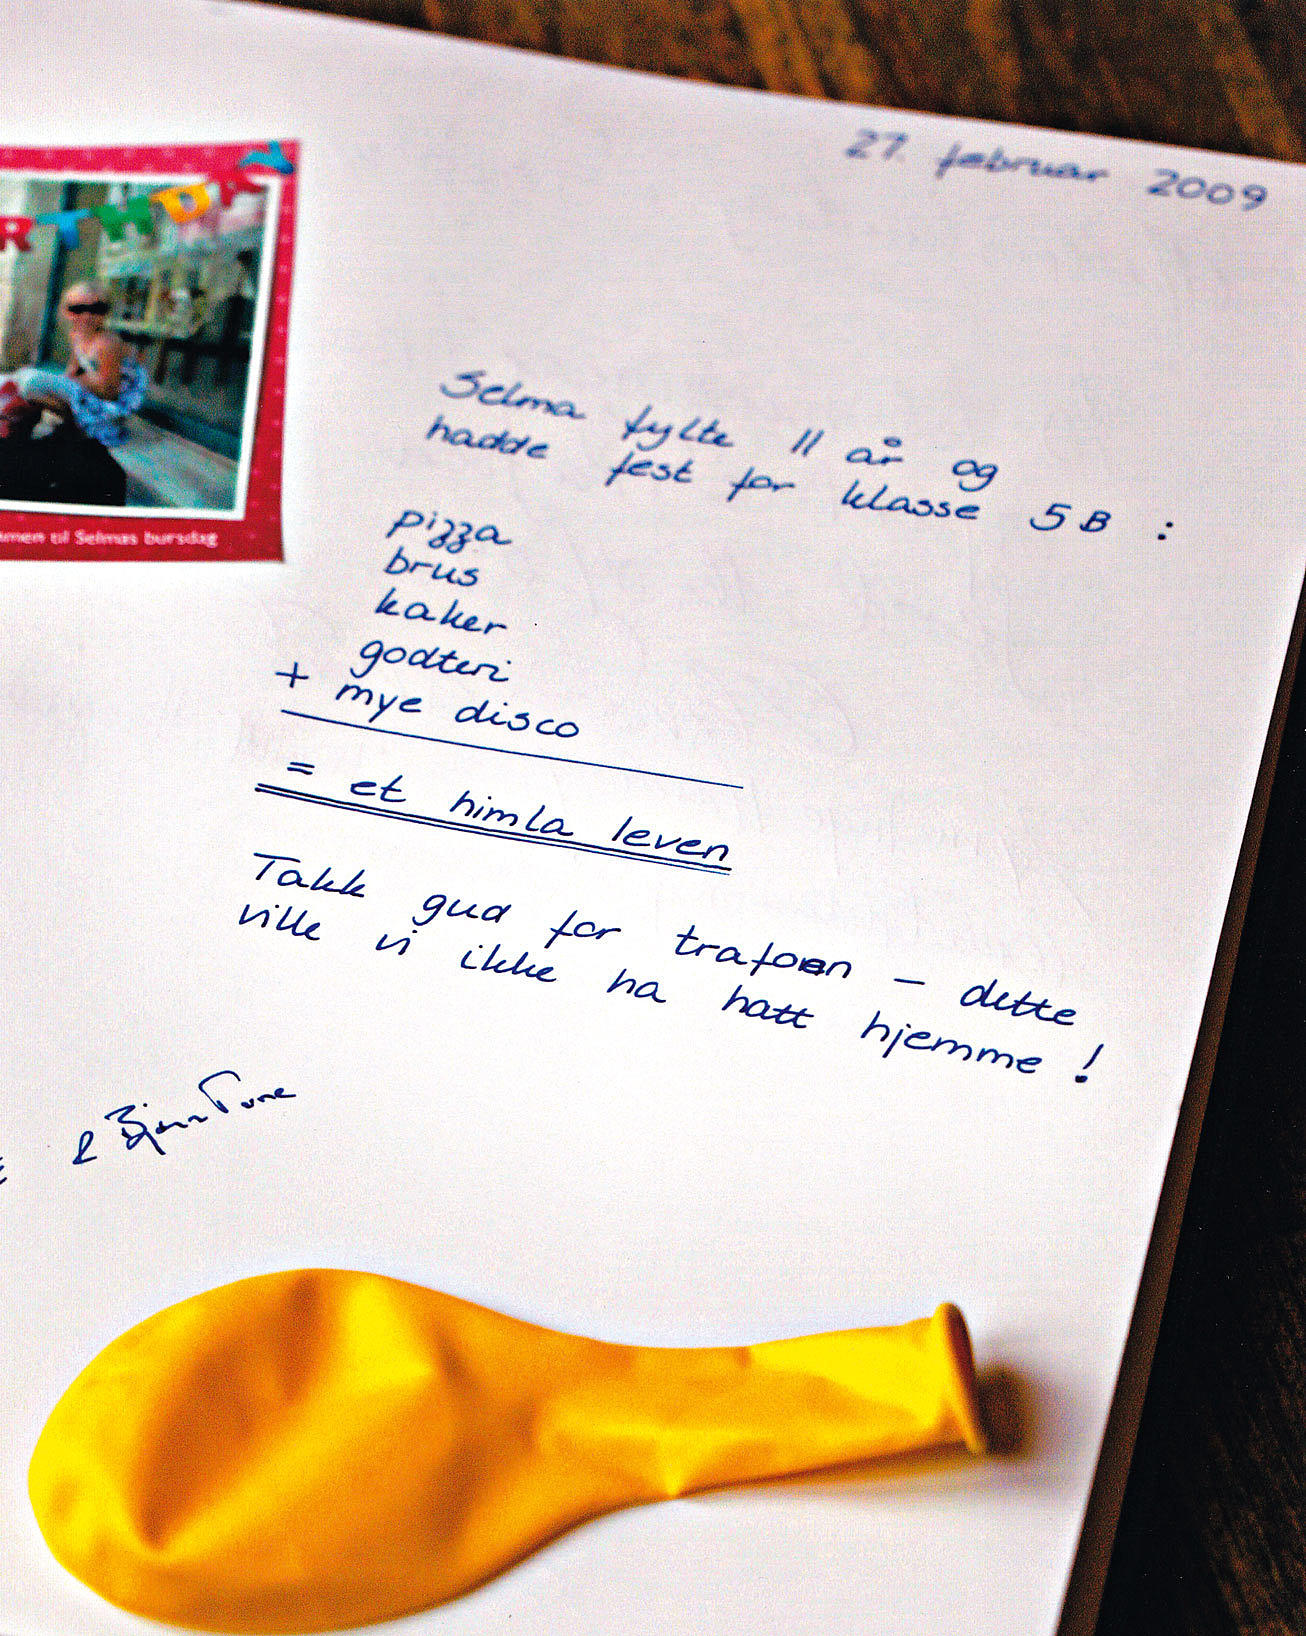 27. februar 2009
RTHDAY
men til Selmas bursdag
Selma fylte 11 år og
hadde fest for klasse 5B :
pizza
brus
kaker
godteri
+ mye disco
= et himla leven
Takk gud for trafoen – dette
ville vi ikke ha hatt hjemme !
& Bjørn Tore